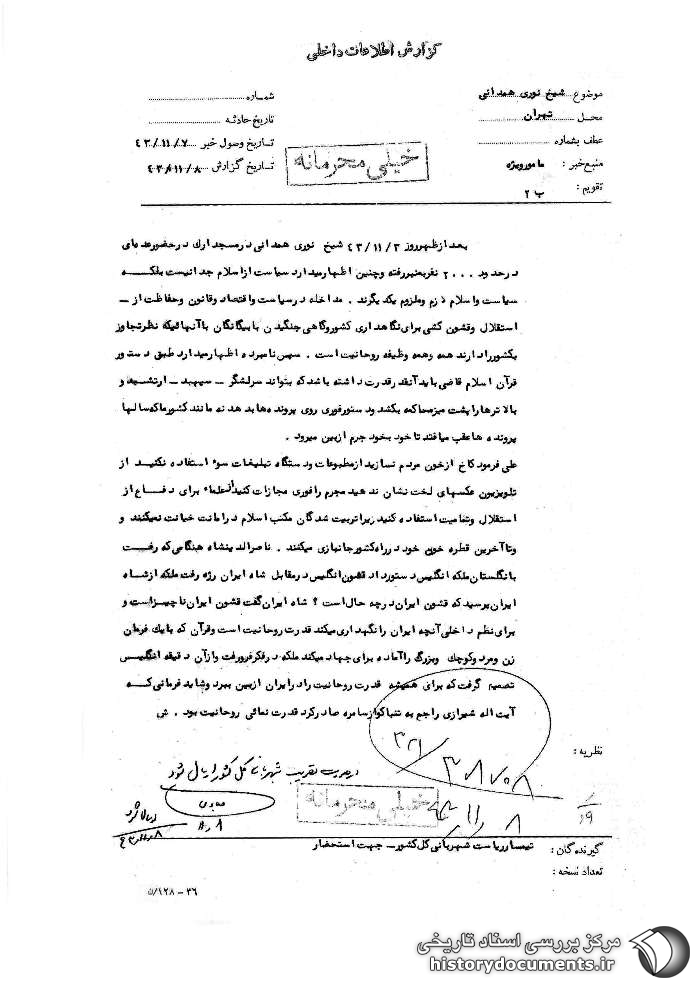 گزارش اطلاعات داخلی
موضوع شیخ نوری همدانی
محل تهران
عطف بشماره
منبع خبر : مامور ویژه
تقویم : ب ۲
شماره
تاریخ حادثه
تاریخ وصول خبر ۴۳/۱۱/۷
تاریخ گزارش ۴۳/۱۱/۸
خیلی محرمانه
بعد از ظهر روز ۴۳/۱۱/۳ شیخ نوری همدانی در مسجد ارك در حضور عده ای
در حدود ۲۰۰۰ نفر بمنبر رفته و چنین اظهار میدارد سیاست از اسلام جدا نیست بلکـــه
سیاست و اسلام لازم و ملزوم یکد یگرند . مداخله در سیاست و اقتصاد و قانون و حفاظت از ــ
استقلال و قشون کشی برای نگاهداری کشور و گاهی جنگیدن با بیگانگان با آنهائیکه نظر تجاوز
بکشور را دارند همه و همه وظیفه روحانیت است . سپس نامبرده اظهار میدارد طبق دستور
قرآن اسلام قاضی باید آنقدر قدرت داشته باشد که بتواند سرلشگر ــ سپهبد ــ ارتشبد و
بالاترها را پشت میز محاکمه بکشد و دستور فوری روی پرونده ها بدهد نه مانند کشور ما که سالها
پرونده ها عقب میافتد تا خود بخود جرم از بین میرود .
علی فرمود کاخ از خون مردم نسازید از مطبوعات و دستگاه تبلیغات سوء استفاده نکنید از
تلویزیون عکسهای لخت نشان ندهید مجرم را فوری مجازات کنید از علماء برای دفــاع از
استقلال و تمامیت استفاده کنید زیرا تربیت شدگان مکتب اسلام در امانت خیانت نمیکنند و
و تا آخرین قطره خون خود در راه کشور جانبازی میکنند . ناصرالدینشاه هنگامی که رفــت
بانگلستان ملکه انگلیس دستور داد قشون انگلیس در مقابل شاه ایران رژه رفت ملکه از شــاه
ایران پرسید که قشون ایران در چه حال است ؟ شاه ایران گفت قشون ایران ناچیز است و
برای نظم داخلی آنچه ایران را نگهداری میکند قدرت روحانیت است و قرآن که با یك فرمان
زن و مرد و کوچك وبزرگ را آماده برای جهاد میکند ملکه در فکر فرو رفت و از آن دقیقه انگلیس
تصمیم گرفت که برای همیشه قدرت روحانیت را در ایران از بین ببرد و شاید فرمانی کــه
آیت اله شیرازی راجع به تنباکو از سامره صادر کرد قدرت نمائی روحانیت بود . ش
نظریه :
۳۲۱
۳۸۷۰۸
کل کشور ارسال شود
خیلی محرمانه
گیرندگان : تیمسار ریاست شهربانی کل کشور ــ جهت استحضار
تعداد نسخه :
۳۶ - ۵/۱۲۸
مرکز بررسی اسناد تاریخی
historydocuments.ir